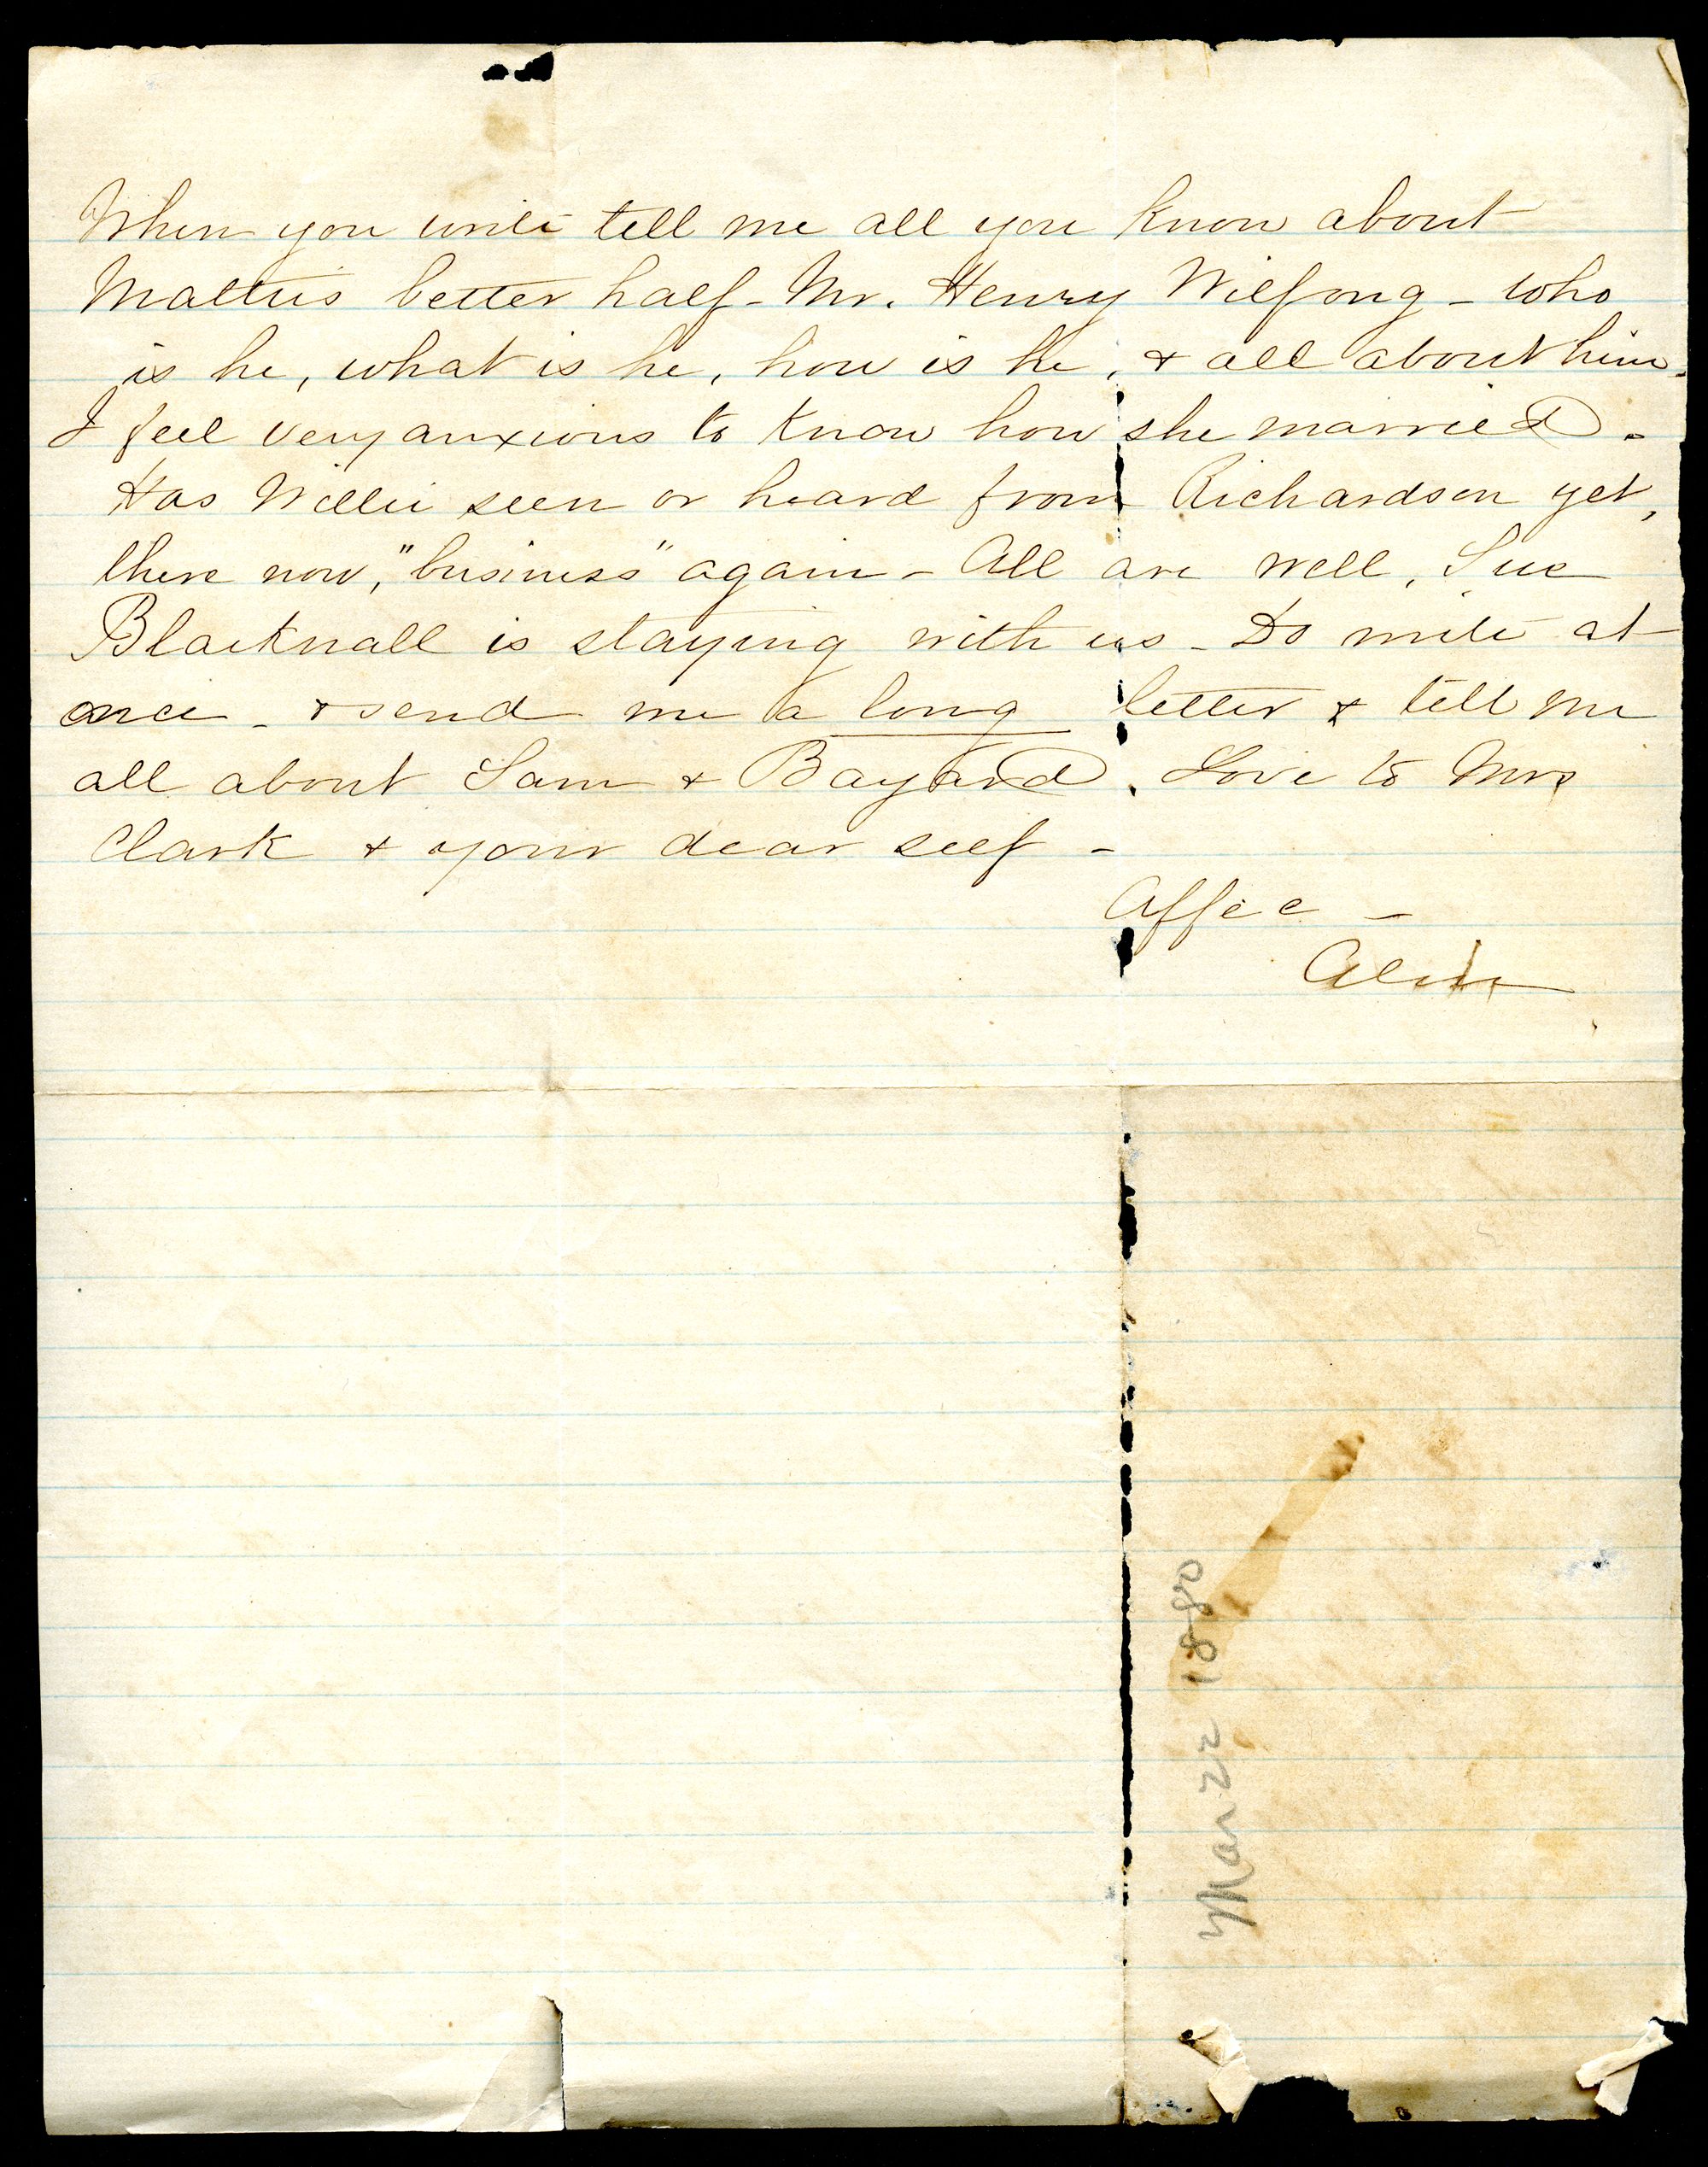 When you write tell me all you know about
Matties better half - Mr. Henry Wilfong - who
is he, what is he, how is he, & all about him.
I feel very anxious to know how she married.
Has Willie seen or heard from Richardson yet,
there now, "business" again - All are well, Sue
Blacknall is staying with us - Do write at
once - & send me a long letter & tell me
all about Sam & Bayard. Love to Mrs
Clark & your dear self -
Affec -
Mar 22 1880